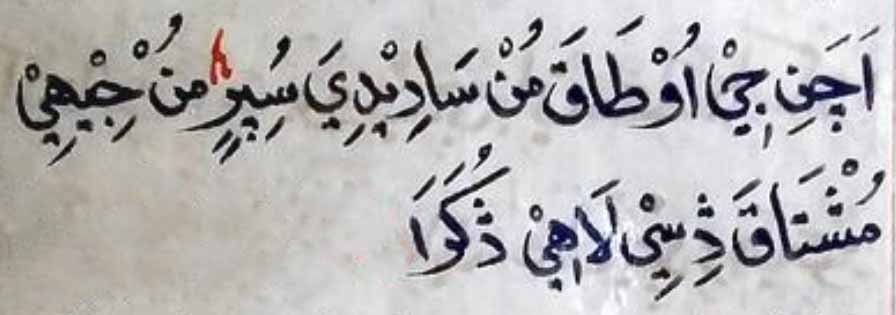 اَچَنِ جِيْ اُوْطَاقَ مُنْ سَادِيْدِيَ سُپِرٍ مُنْ جِيْهِيْ
مُشْتَاقَ ڎِسِيْ لَاهِيْ ڎُكَوَا